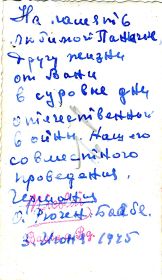 На память
любимой Панечке
другу жизни
от Вани
в суровые дни
отечественной
войны. Нашего
совместного
проведения.
Германия
О. Рюген. Баабе.
3 июня 1945